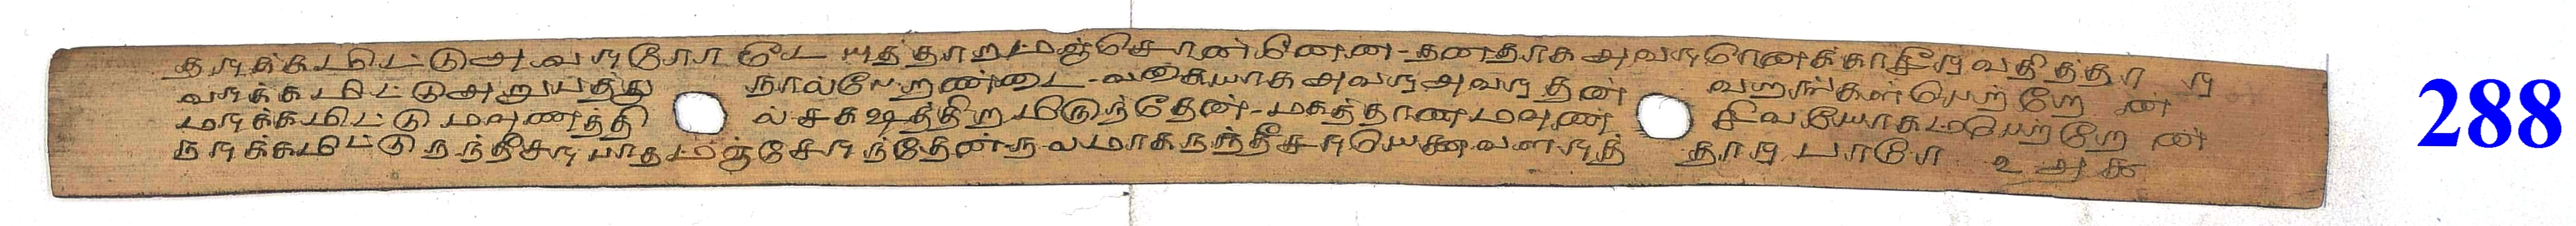 தருக்கமிட்டுஅவருரோடேயுத்தாறமஞ்சொன்னேன-தனதாகஅவருாெனக்காசீருவதித்தார்
வருக்கமிட்டுஅறுபத்து நால்பேறண்டை-வகையாகஅவருஅவருதன் வறங்கள்பெற்றேன்
மருக்கமிட்டுமவுணத்தி ல்சகஷத்திறமிருந்தேன்-மகத்தாணமவுண சிவயோகம்பெற்றேன்
நருக்கமிட்டுநந்தீசருபாதமஞ்சேருந்தேன்நலமாகநந்தீசருயெனவளருத் தாருபாரே உஅகூ
288